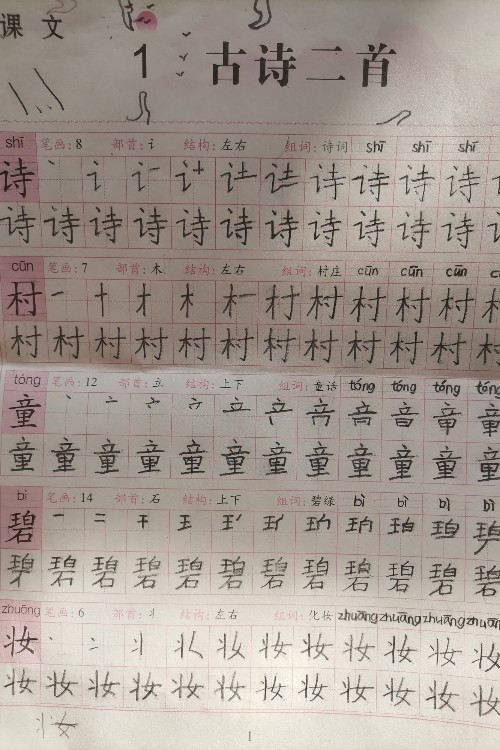 课 文
1 古诗二首
shī 笔画:8 部首:讠 结构:左右 组词:诗词 shī shī shī
诗 丶 讠 诗 诗 诗 诗
诗 诗 诗 诗 诗 诗 诗 诗 诗 诗 诗 诗
cūn 笔画:7 部首:木 结构:左右 组词:村庄 cūn cūn cūn
村 一 十 才 木 村 村 村 村 村 村
村 村 村 村 村 村 村 村 村 村 村 村
tóng 笔画:12 部首:立 结构:上下 组词:童话 tóng tóng tóng tóng
童 丶 亠 立 音
童 童 童 童 童 童 童 童 童 童 童 童
bì 笔画:14 部首:石 结构:上下 组词:碧绿 bì bì bì bì
碧 一 二 王 珀 珀
碧 碧 碧 碧 碧 碧 碧 碧 碧 碧 碧 碧
zhuāng 笔画:6 部首:丬 结构:左右 组词:化妆 zhuāng zhuāng zhuāng zhuāng
妆 丶 冫 丬 妆 妆 妆 妆 妆 妆 妆
妆 妆 妆 妆 妆 妆 妆 妆 妆 妆 妆 妆
妆
1